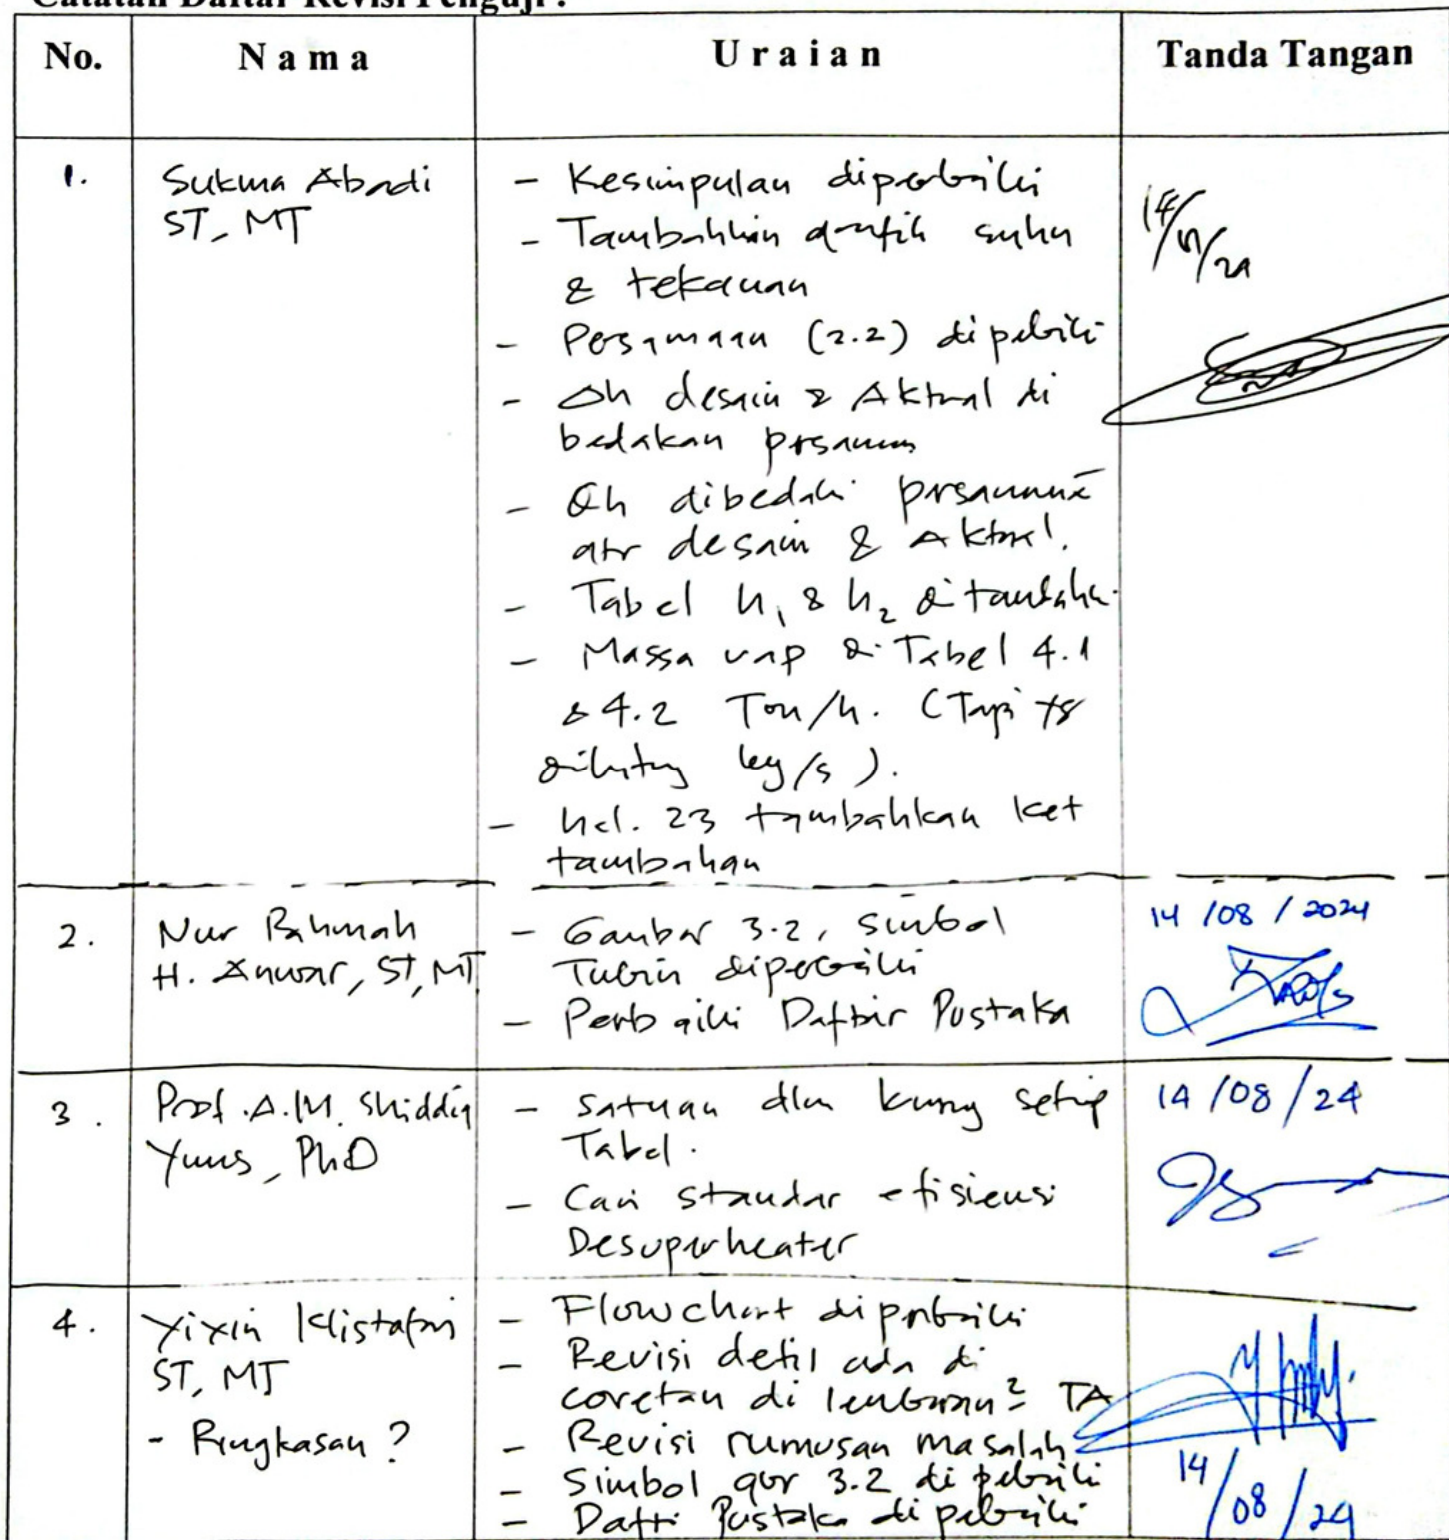 Catatan Daftar Revisi Penguji :
No. Nama Uraian Tanda Tangan
1. Sukma Abadi ST, MT
- Kesimpulan diperbaiki
- Tambahkan grafik suhu
& tekanan
- Persamaan (2.2) dipebaiki
- Δh desain & Aktual di
bedakan prsamaan
- Qh dibedaki prsamaanx
atr desain & Aktual.
- Tabel h1 & h2 ditambahk
- Massa uap di Tabel 4.1
& 4.2 Ton/h. (Tapi
dihitung kg/s).
- Hal. 23 tambahkan ket
tambahan
14/ /24
2. Nur Rahmah
H. Anwar, ST, MT
- Gambar 3.2, simbol
Turbin diperbaiki
- Perbaiki Daftar Pustaka
14/08/2024
3. Prof. A.M. Shiddiq
Yunus, PhD
- Satuan dlm kurung setiap
Tabel.
- Cari standar efisiensi
Desuperheater
14/08/24
4. Yixin Klistafani
ST, MT
- Ringkasan?
- Flowchart diperbaiki
- Revisi detil ada di
coretan di lembaran2 TA
- Revisi rumusan masalah
- Simbol gbr 3.2 dipebaiki
- Daftr Pustaka dipebaiki
14/08/24